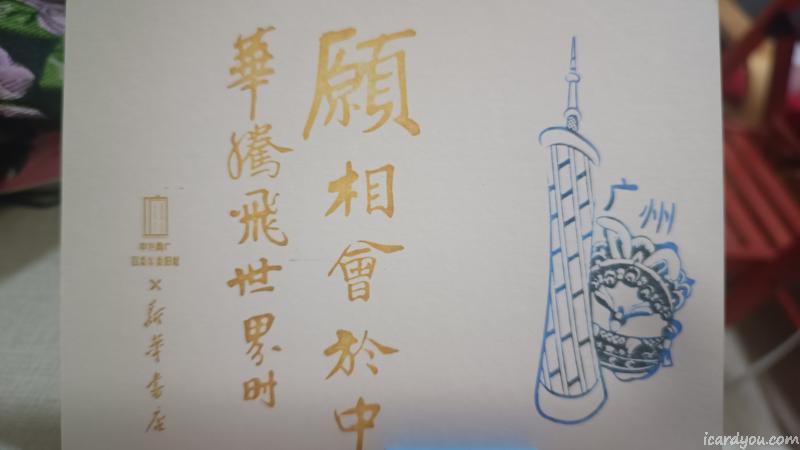 願相會於中
華騰飛世界时
×新華書店
广州
icardyou.com